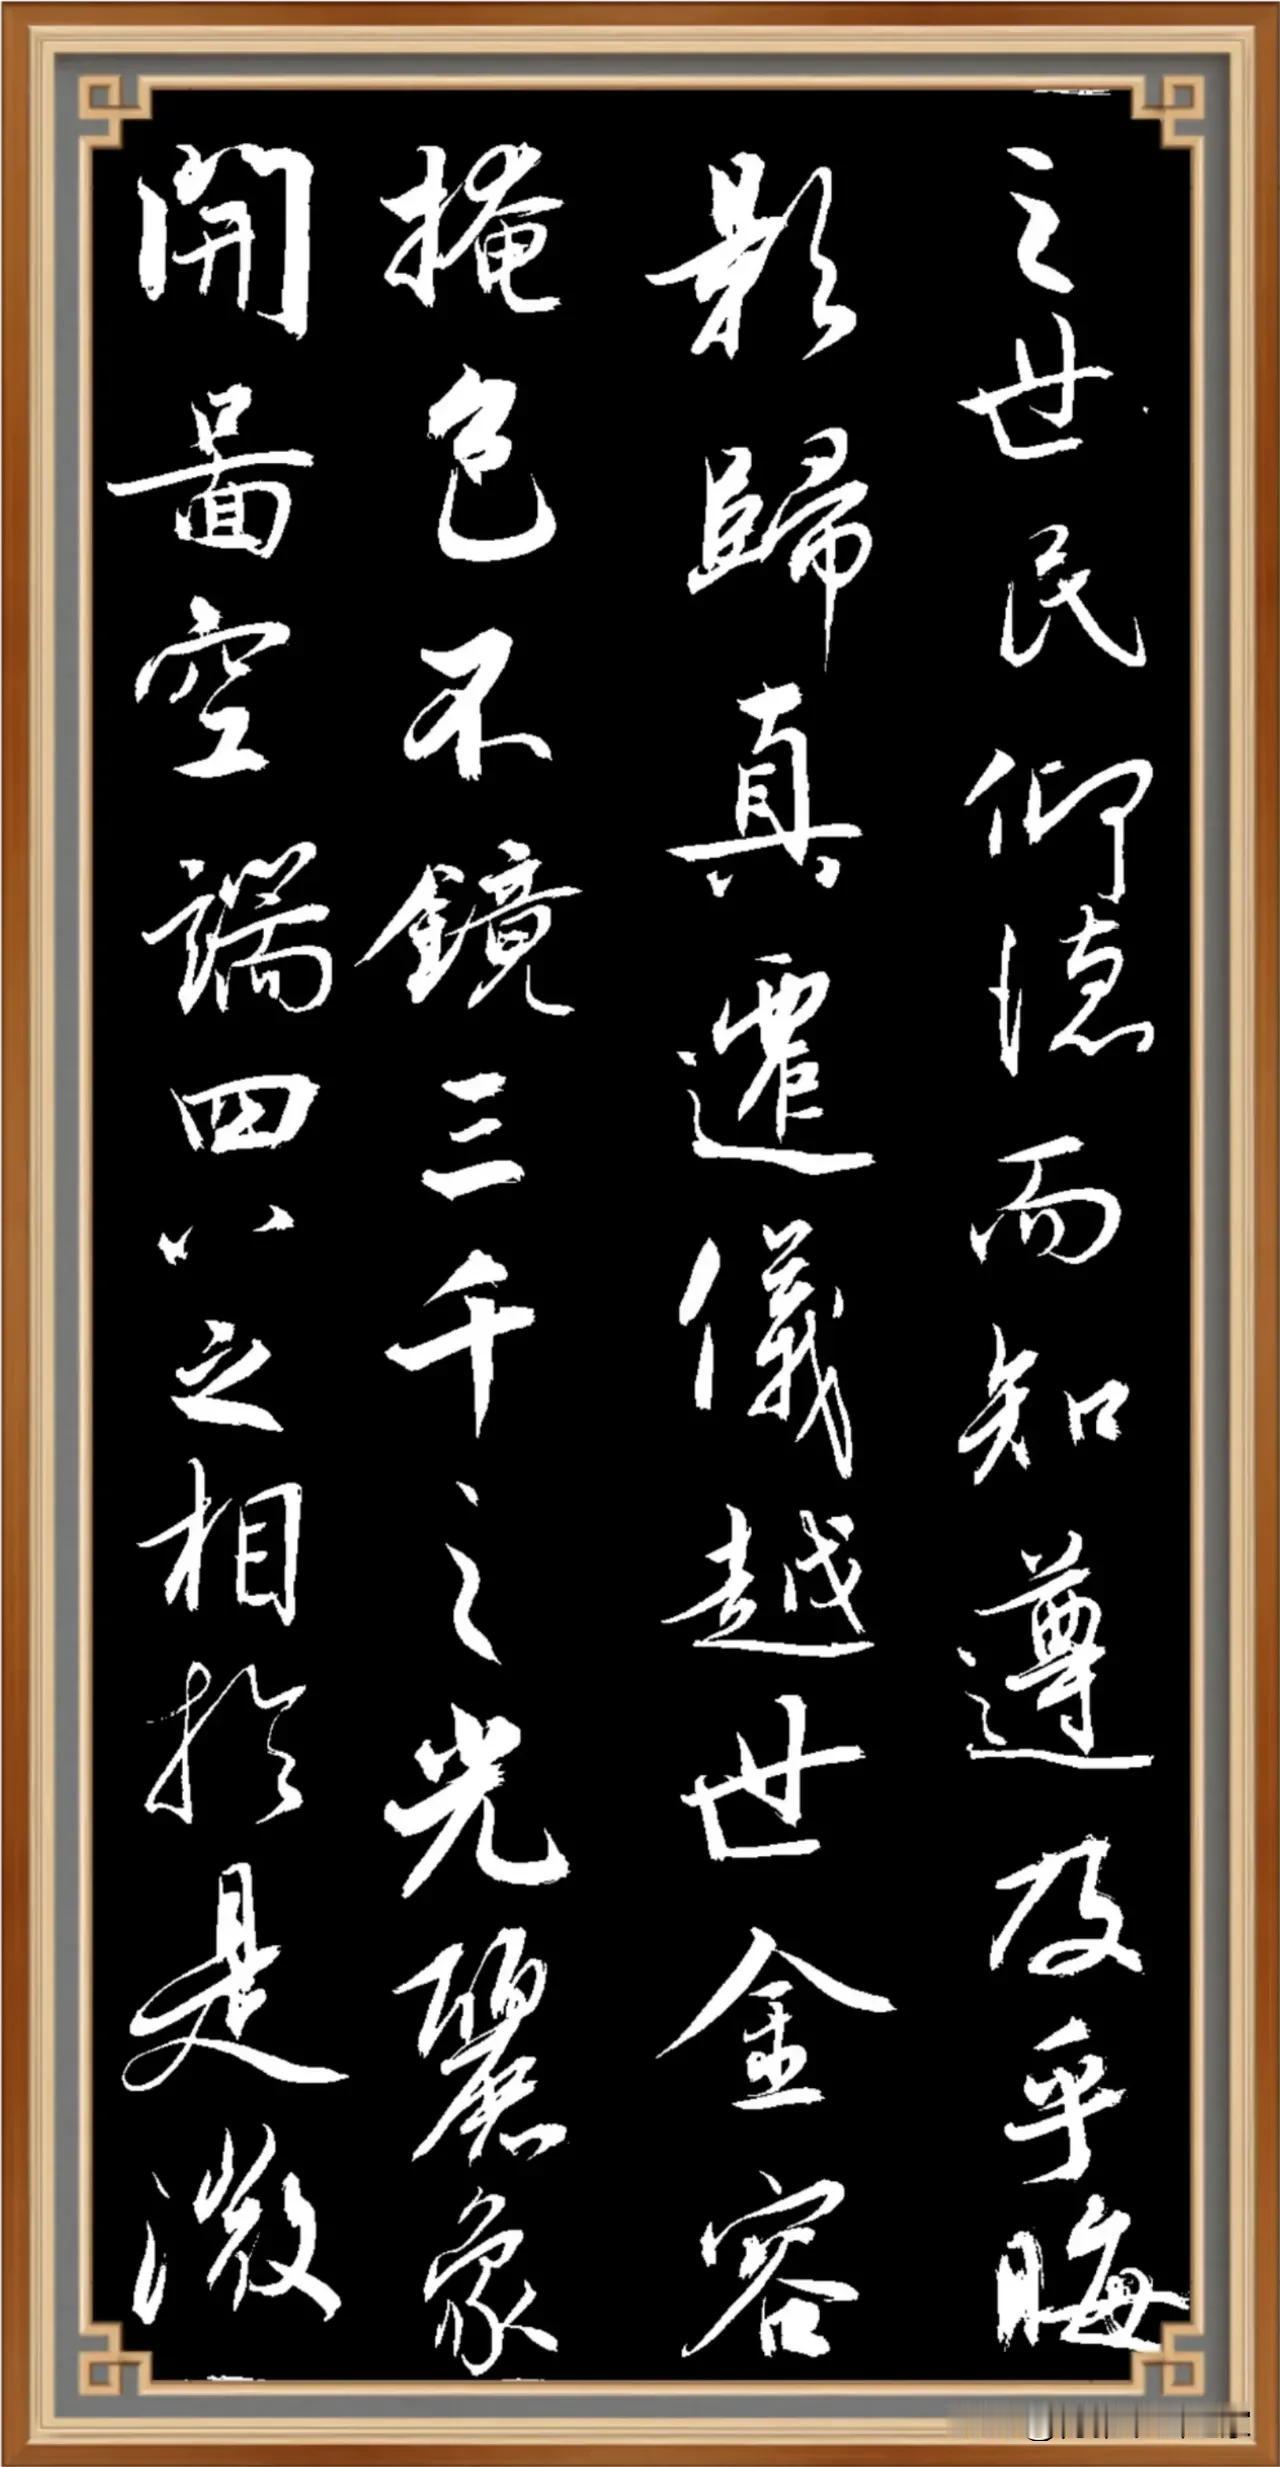 之世民仰德而知遵及乎晦
影歸真遷儀越世金容
掩色不鏡三千之光麗象
開圖空端四八之相於是微